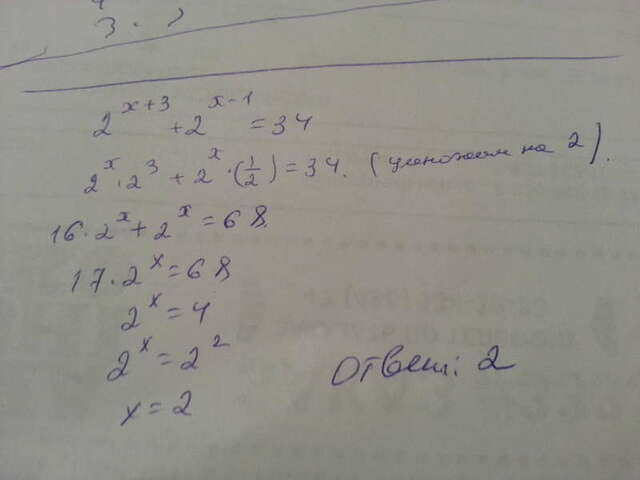 3 .
2^{x+3} + 2^{x-1} = 34
2^x · 2^3 + 2^x · (1/2) = 34. (умножаем на 2).
16 · 2^x + 2^x = 68
17 · 2^x = 68
2^x = 4
2^x = 2^2
x = 2
Ответ: 2